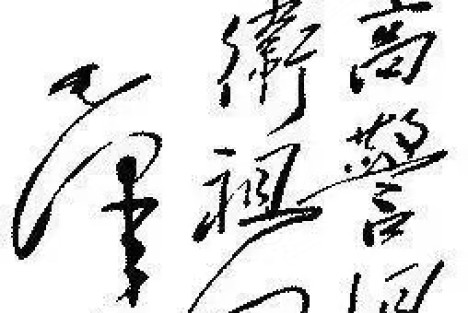 高警
衛祖
毛泽